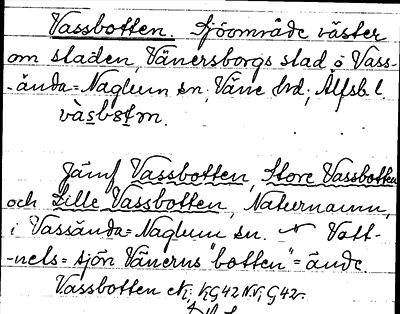 Vassbotten. Sjöområde väster
om staden, Vänersborgs stad o Vass-
-ända=Naglum sn, Väne hd, Älfsb l.
vàsbstm.
Jämf Vassbotten, Store Vassbotten
och Lille Vassbotten, Naturnamn,
i Vassända=Naglum sn. Vatt-
-nets= sjön Vänerns "botten"= ände.
Vassbotten